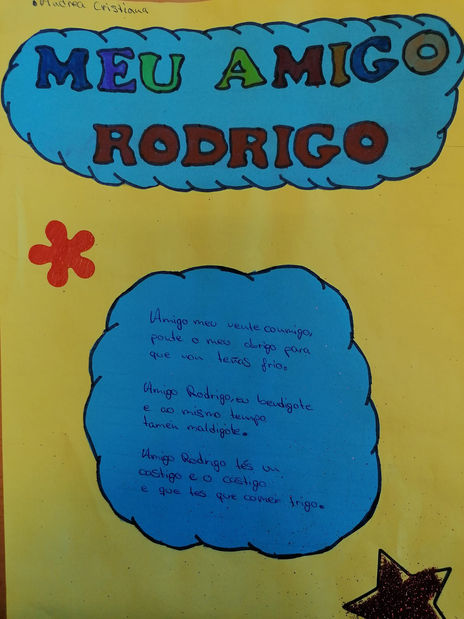 Andrea Cristiana
MEU AMIGO
RODRIGO
Amigo meu vente conmigo,
ponte o meu abrigo para
que non teñas frio.
Amigo Rodrigo, eu bendigote
e ao mismo tempo
tamen maldigote.
Amigo Rodrigo tés un
castigo e o castigo
e que tes que comer trigo.